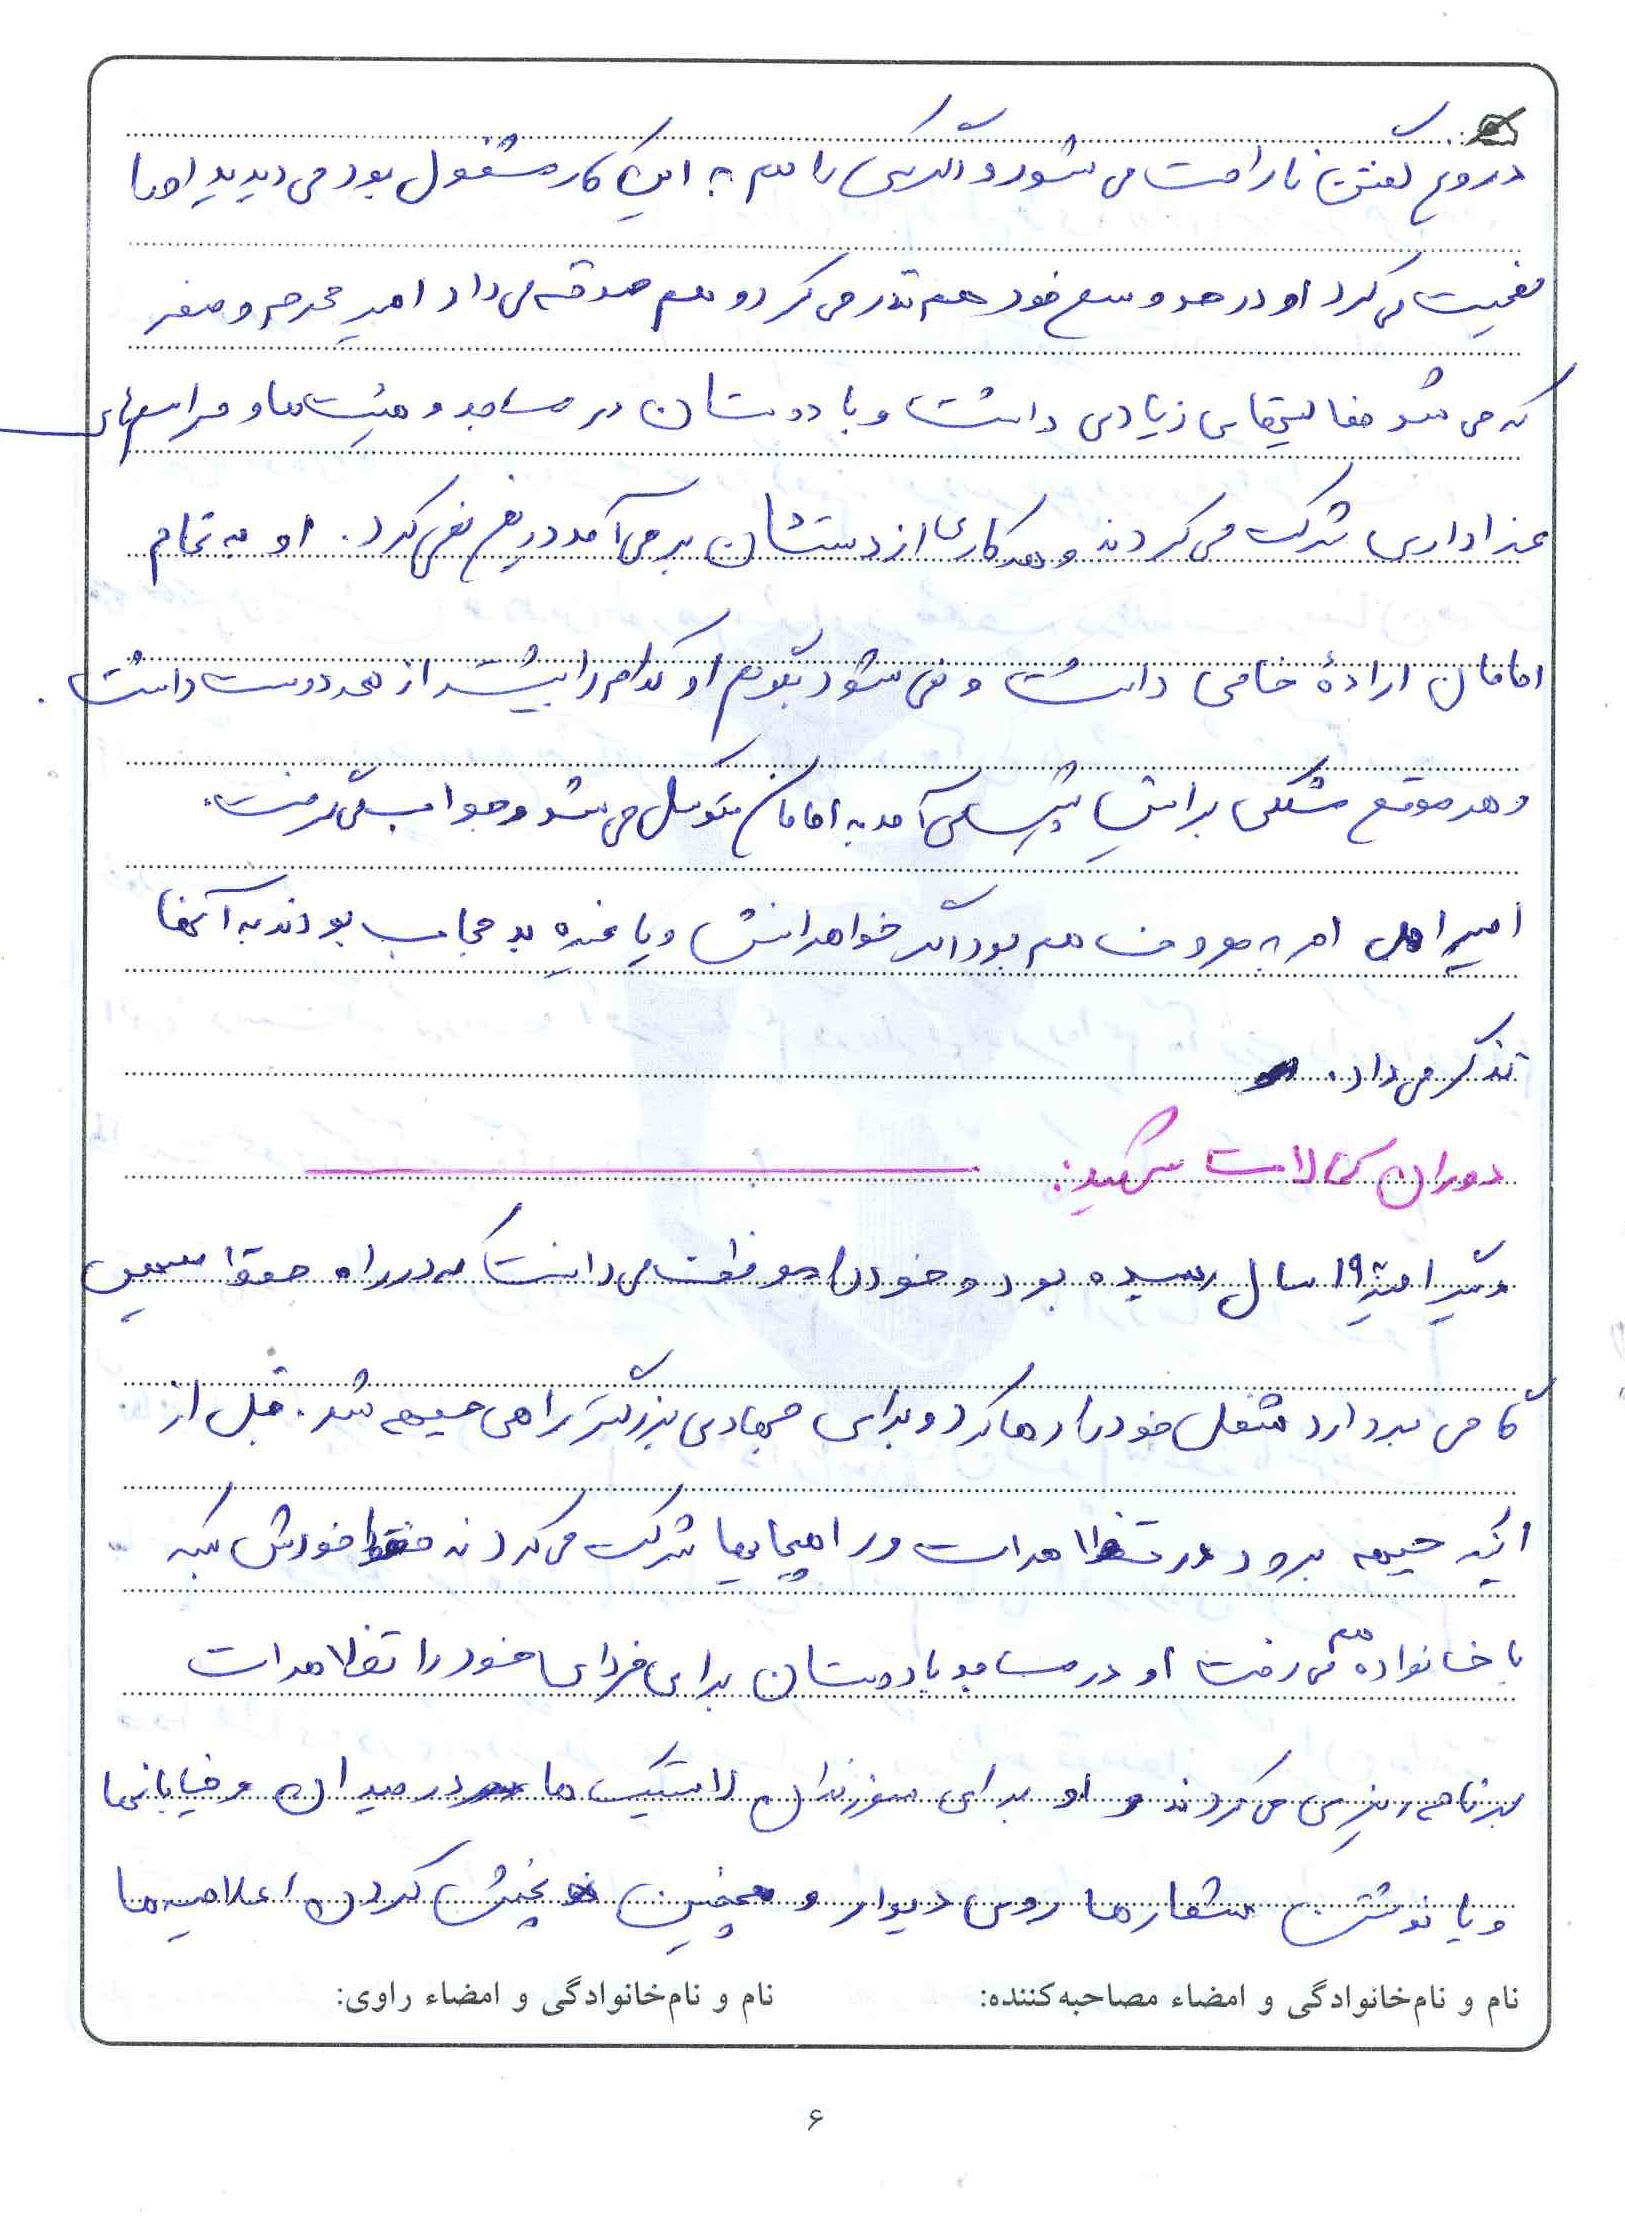 دروغ گفتن ناراحت می شود و اگر کسی را هم به این کار مشغول بود می دید امر
نصیحت می کرد او در حد وسع خود هم نذر می کرد و هم صدقه می داد امیر محرم و صفر
که می شد فعالیتهای زیادی داشت و با دوستان در مساجد و هیئت ها و مراسمهای
عزاداری شرکت می کردند و هر کاری از دستشان بر می آمد دریغ نمی کرد. او به تمام
امامان ارادهٔ خاصی داشت و نمی شود بگویم او کدام را بیشتر از همه دوست داشت.
و هر موقع مشکلی برایش پیش می آمد به امامان متوسل می شد و جواب می گرفت.
امیر اهل امر به معروف هم بود اگر خواهرانش و یا غیره بد حجاب بودند به آنها
تذکر می داد.
دوران کمالات شهید:
وقتی امیر به ۱۹ سال رسیده بود و خود را موظف می دانست که در راه حق
گامی بردارد شغل خود را رها کرد و برای جهادی بزرگتر راهی جبهه شد. قبل از
اینکه جبهه برود در تظاهرات و راهپیمایها شرکت می کرد نه فقط خودش بلکه
با خانواده هم می رفت او در مساجد با دوستان برای فردای خود را تظاهرات
برنامه ریزی می کردند و او برای سوزندان لاستیک ها در میدان و خیابانها
و یا نوشتن شعارها روی دیوار و همچنین پخش کردن اعلامیه ها
نام و نام‌خانوادگی و امضاء مصاحبه‌کننده: نام و نام‌خانوادگی و امضاء راوی:
۶